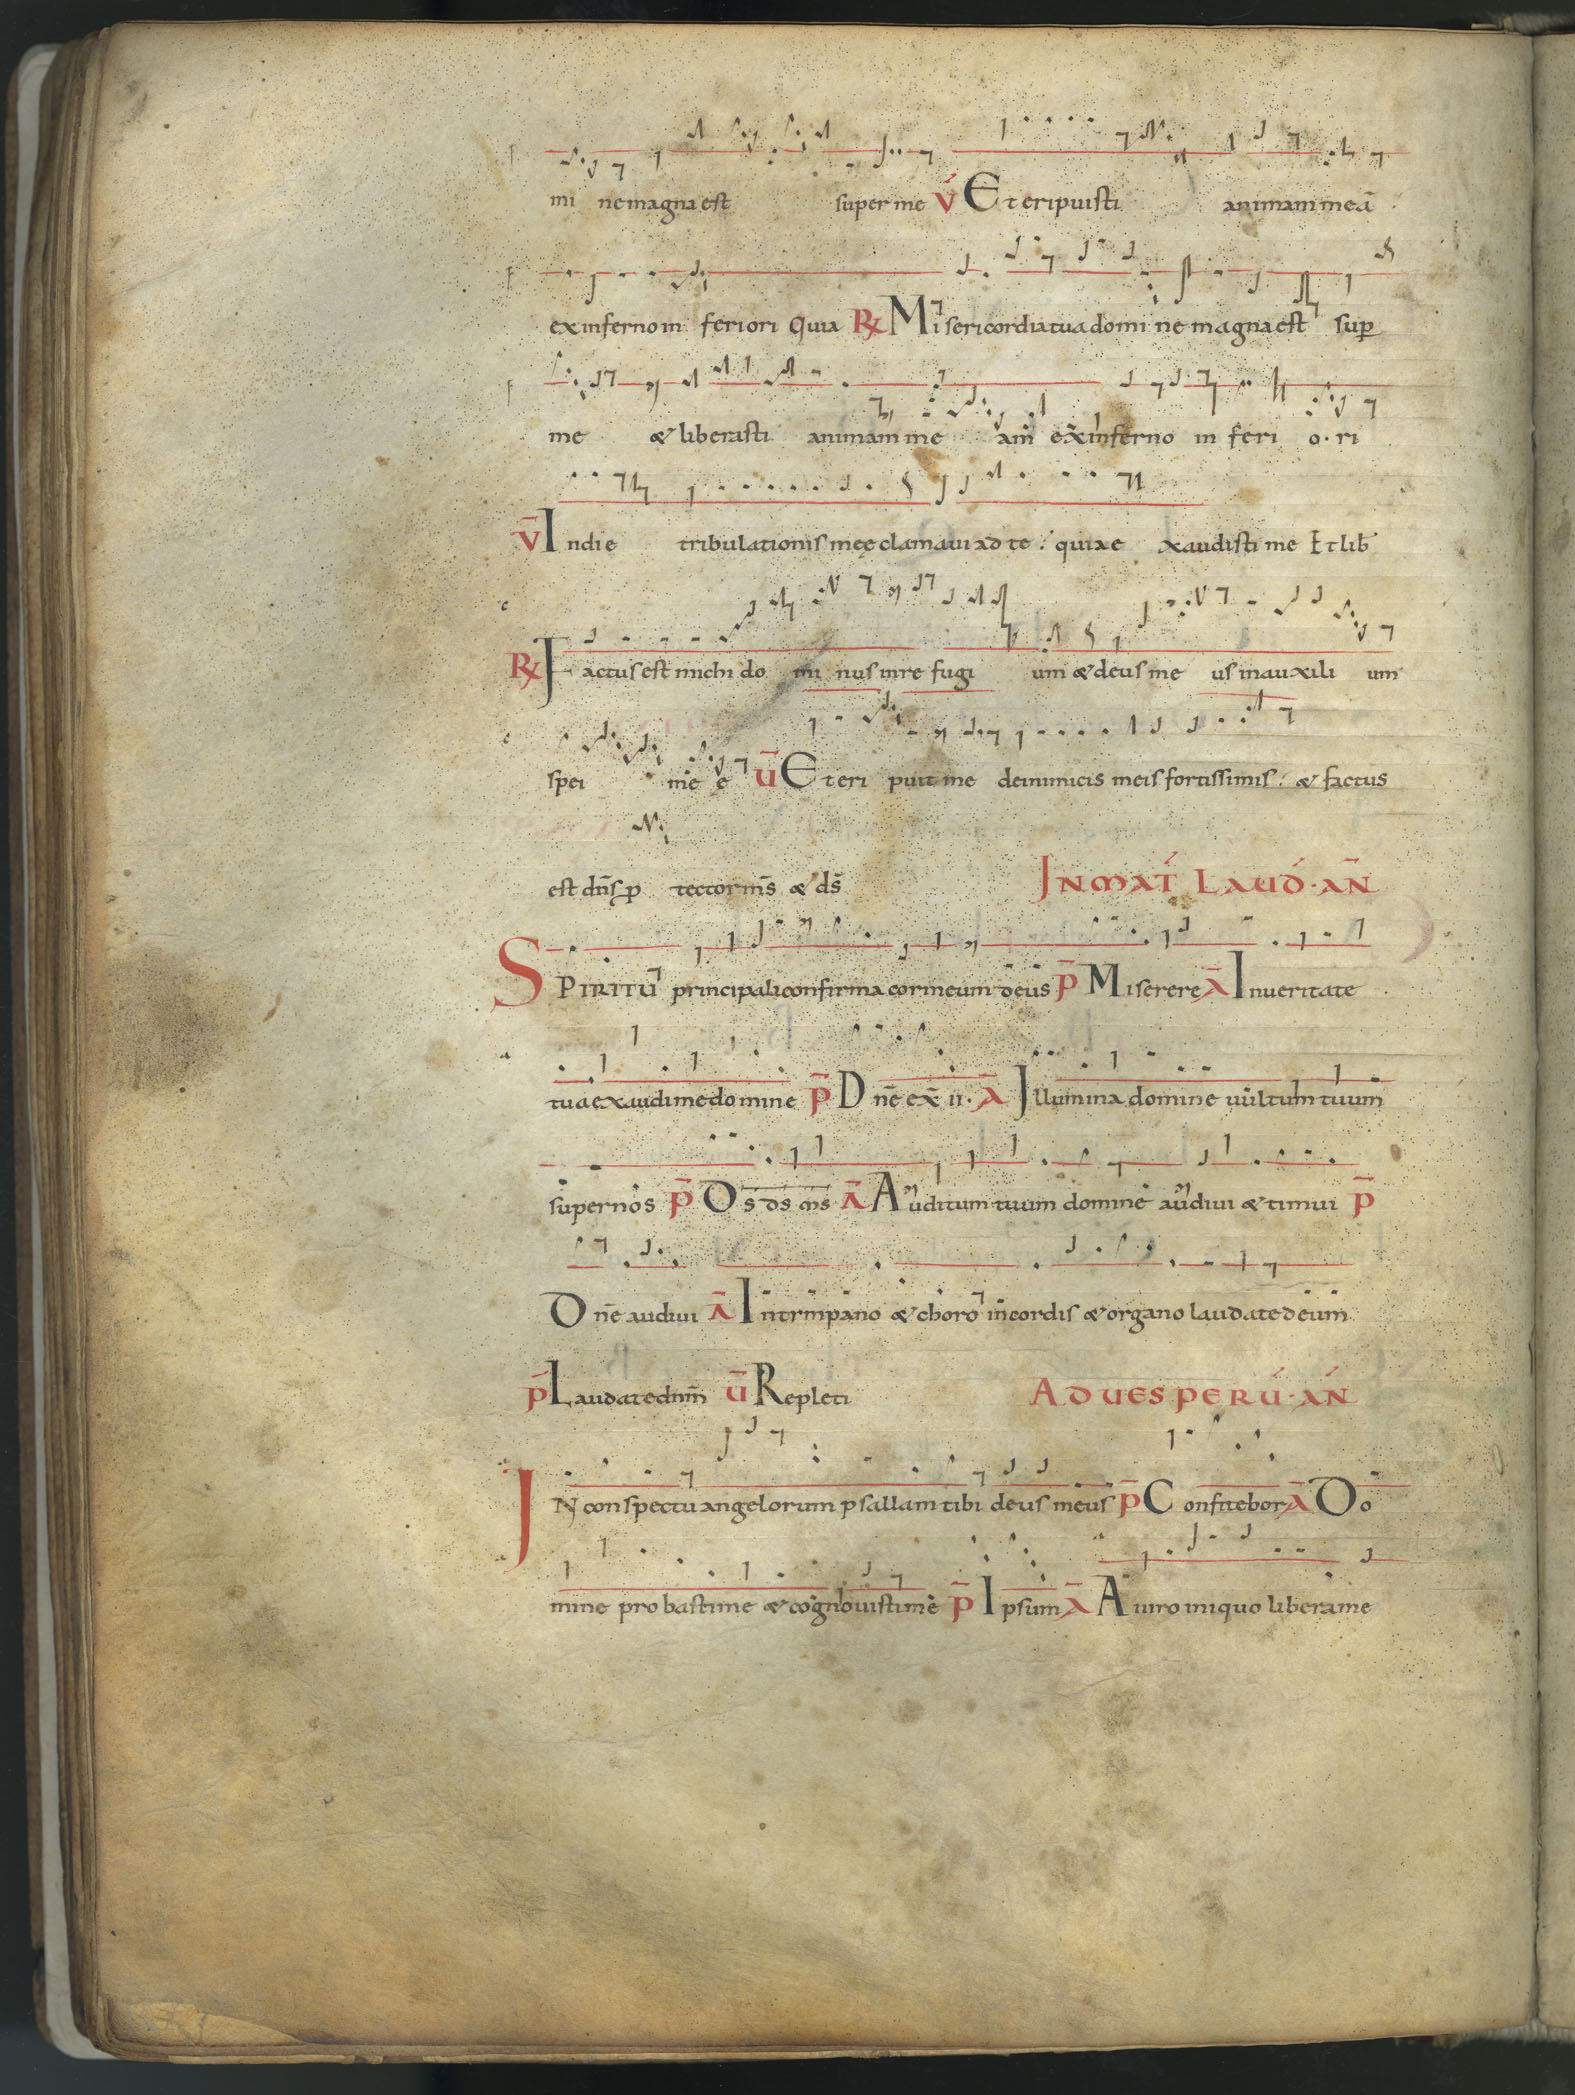 mi ne magna est super me V̄ Et eripuisti animam meā
ex inferno in feriori Quia R̸ Misericordia tua domi ne magna est sup̄
me & liberasti animam me am ex inferno in feri o · ri
V̄ In die tribulationis meę clamaui ad te : quia e xaudisti me Et lib̄
R̸ Factus est michi do mi nus in re fugi um & deus me us in auxili um
spei me e ū Et eri puit me de inimicis meis fortissimis : & factus
est dn̄s p tector ms̄ & ds̄
IN MAT́ LAUD́ · AN̄
SPIRITU principali confirma cor meum deus p̄ Miserere Ā In ueritate
tua exaudi me domine p̄ Dne ex̄ ii · Ā Illumina domine uultum tuum
super nos p̄ Ds ds ms Ā Auditum tuum domine audiui & timui p̄
Dne audiui Ā In timpano & choro in cordis & organo laudate deum
p̄ Laudate dnm̄ ū Repleti AD UESPERŪ · AŃ
IN conspectu angelorum psallam tibi deus meus p̄ Confitebor Ā Do
mine probasti me & cognouisti me p̄ Ipsum Ā A uiro iniquo libera me